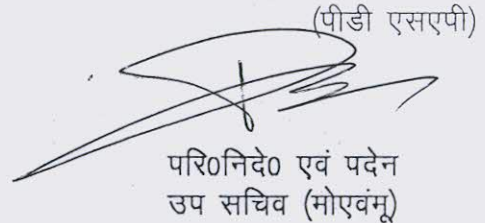 (पीडी एसएपी)
परि०निदे० एवं पदेन
उप सचिव (मोएवंमू)